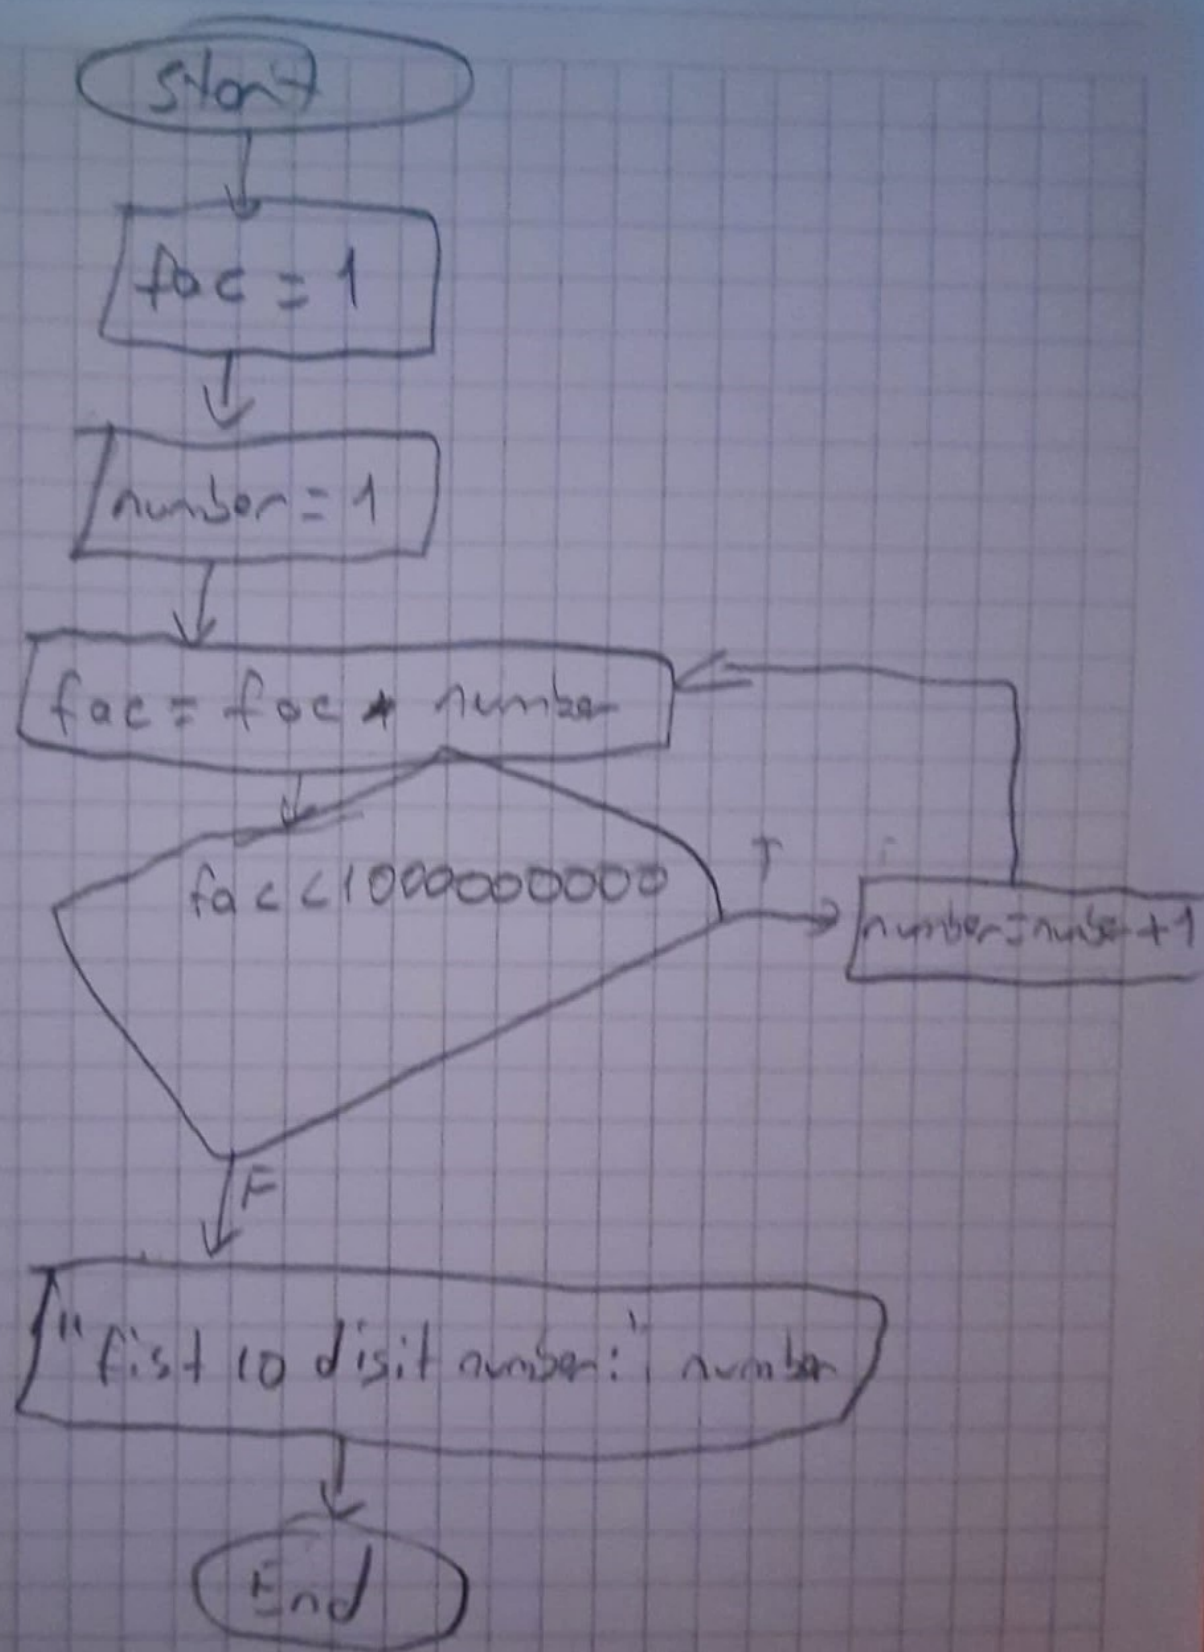 Start
fac = 1
number = 1
fac = fac * number
fac < 1000000000
T
number = number + 1
F
"fist 10 disit number:", number
End